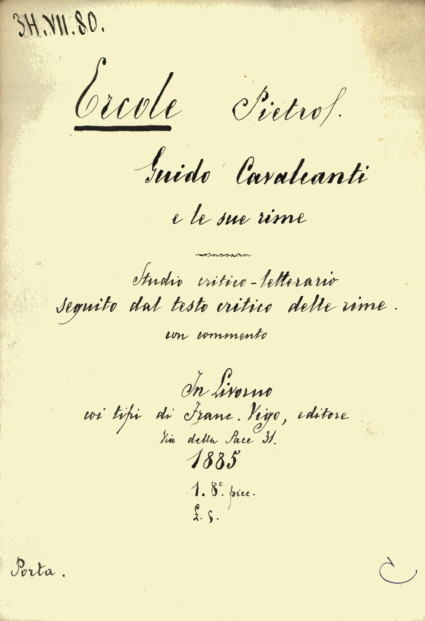 3H.VII.80.
Ercole Pietro.
Guido Cavalcanti
e le sue rime
Studio critico-letterario
seguito dal testo critico delle rime.
con commento
In Livorno
coi tipi di Franc. Vigo, editore
Via della Pace 31.
1885
1. 8.° picc.
Porta.